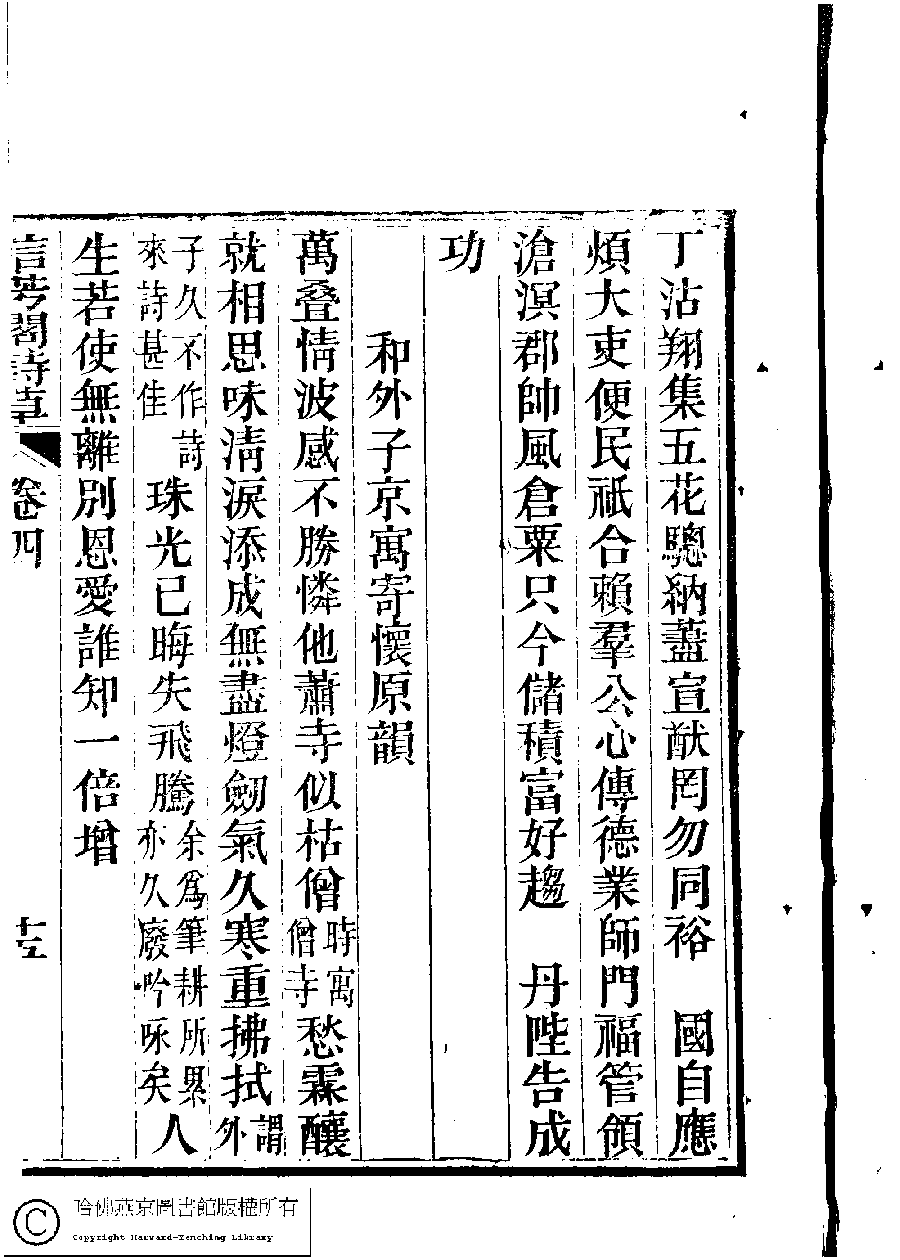 丁沽翔集五花驄納藎宣猷罔勿同裕　國自應
煩大吏便民祗合賴羣公心傳德業師門福管領
滄溟郡帥風倉粟只今儲積富好趨　丹陛告成
功
和外子京寓寄懷原韻
萬叠情波感不勝憐他蕭寺似枯僧時寓僧寺愁霖釀
就相思味淸淚添成無盡燈劒氣久寒重拂拭謂外
子久不作詩來詩甚佳珠光已晦失飛騰余爲筆耕所累亦久廢吟咏矣人
生若使無離別恩愛誰知一倍增
閣詩草　卷四　十五
哈佛燕京圖書館版權所有
Copyright Harvard-Yenching Library